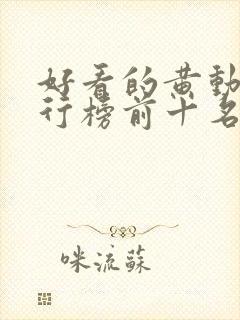 好看的黄动
行榜前十名
咪流苏